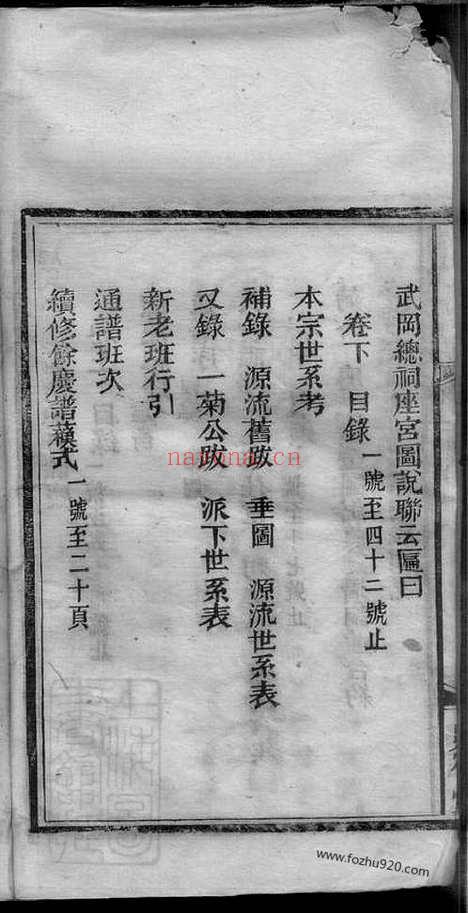 武岡總祠座宮圖說聯云匾曰
卷下 目錄 一號至四十二號止
本宗世系考
補錄 源流舊跋 垂圖 源流世系表
又錄 一菊公跋 派下世系表
新老班行引
通譜班次
續修餘慶譜蘋式 一號至二十頁
nayona.cn
www.fozhu920.com